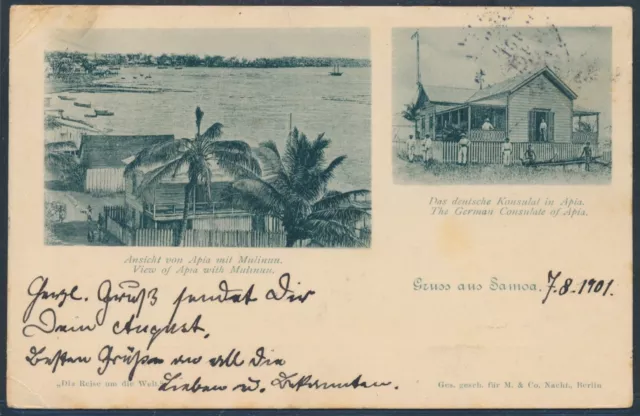 Das deutsche Konsulat in Apia.
The German Consulate of Apia.
Ansicht von Apia mit Mulinuu.
View of Apia with Mulinuu.
Gruss aus Samoa. 7.8.1901.
Herzl. Gruß sendet Dir
Dein August.
Besten Grüße an all die
Lieben u. Bekannten.
„Die Reise um die Welt."
Ges. gesch. für M. & Co. Nachf., Berlin